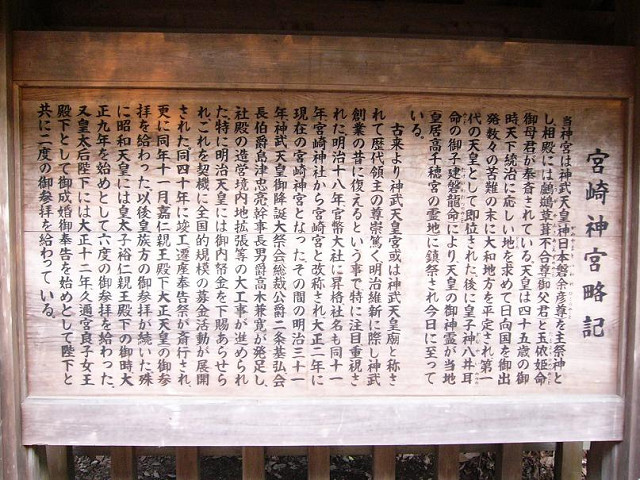 宮崎神宮略記
当神宮は神武天皇神日本磐余彦尊を主祭神と
し相殿には鸕鷀草葺不合尊御父君と玉依姫命
御母君が奉斎されている。天皇は四十五歳の御
時天下統治に応しい地を求めて日向国を御出
発数々の苦難の末に大和地方を平定され第一
代の天皇として即位された後に皇子神八井耳
命の御子建磐龍命により天皇の御神霊が当地
(皇居高千穂宮の霊地に鎮祭され今日に至って
いる。
古来より神武天皇宮或は神武天皇廟と称さ
れて歴代領主の尊崇篤く明治維新に際し神武
創業の昔に復えるという事で特に注目重視さ
れた。明治十八年官幣大社に昇格社名も同十一
年宮崎神社から宮崎宮と改称され大正二年に
現在の宮崎神宮となった。その間の明治三十一
年神武天皇御降誕大祭会総裁公爵二条基弘会
長伯爵島津忠亮幹事長男爵高木兼寛が発足し
社殿の造営境内地拡張等の大工事が進められ
た特に明治天皇には御内帑金を下賜あらせら
れ、これを契機に全国的規模の募金活動が展開
された同四十年に竣工遷座奉告祭が斎行され、
更に同年十一月嘉仁親王殿下大正天皇の御参
拝を給わった以後皇族方の御参拝が続いた殊
に昭和天皇には皇太子裕仁親王殿下の御時大
正九年を始めとして六度の御参拝を給わった、
又皇太后陛下には大正十二年久邇宮良子女王
殿下として御成婚御奉告を始めとして陛下と
共に二度の御参拝を給わっている。